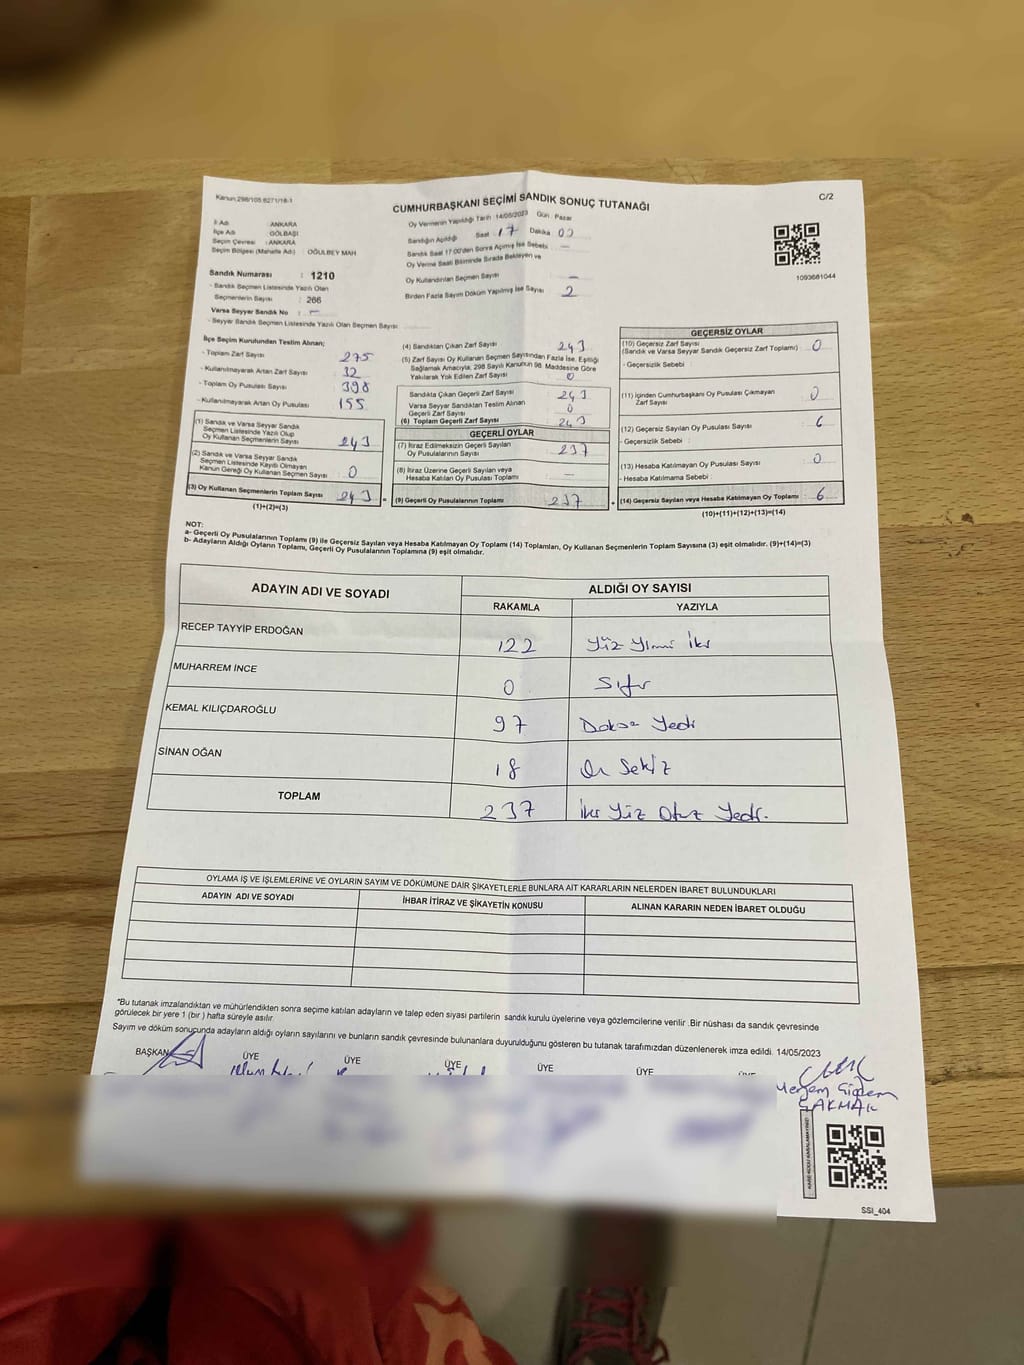 Kanun 298/105 6271/18-1
CUMHURBAŞKANI SEÇİMİ SANDIK SONUÇ TUTANAĞI
C/2
İl Adı : ANKARA
İlçe Adı : GÖLBAŞI
Seçim Çevresi : ANKARA
Seçim Bölgesi (Mahalle Adı) : OĞULBEY MAH
Sandık Numarası : 1210
- Sandık Seçmen Listesinde Yazılı Olan
Seçmenlerin Sayısı : 266
Varsa Seyyar Sandık No : –
- Seyyar Sandık Seçmen Listesinde Yazılı Olan Seçmen Sayısı:
Oy Vermenin Yapıldığı Tarih :14/05/2023 Gün : Pazar
Sandığın Açıldığı Saat 17 Dakika 00
Sandık Saat 17:00'den Sonra Açılmış İse Sebebi –
Oy Verme Saati Bitiminde Sırada Bekleyen ve
Oy Kullandırılan Seçmen Sayısı –
Birden Fazla Sayım Döküm Yapılmış İse Sayısı 2
1093681044
İlçe Seçim Kurulundan Teslim Alınan;
- Toplam Zarf Sayısı 275
- Kullanılmayarak Artan Zarf Sayısı 32
- Toplam Oy Pusulası Sayısı 398
- Kullanılmayarak Artan Oy Pusulası 155
(1) Sandık ve Varsa Seyyar Sandık
Seçmen Listesinde Yazılı Olup
Oy Kullanan Seçmenlerin Sayısı 243
(2) Sandık ve Varsa Seyyar Sandık
Seçmen Listesinde Kayıtlı Olmayan
Kanun Gereği Oy Kullanan Seçmen Sayısı : 0
(3) Oy Kullanan Seçmenlerin Toplam Sayısı 243 =
(1)+(2)=(3)
(4) Sandıktan Çıkan Zarf Sayısı : 243
(5) Zarf Sayısı Oy Kullanan Seçmen Sayısından Fazla İse, Eşitliği
Sağlamak Amacıyla; 298 Sayılı Kanunun 98. Maddesine Göre
Yakılarak Yok Edilen Zarf Sayısı : 0
Sandıkta Çıkan Geçerli Zarf Sayısı : 243
Varsa Seyyar Sandıktan Teslim Alınan
Geçerli Zarf Sayısı : 0
(6) Toplam Geçerli Zarf Sayısı : 243
GEÇERLİ OYLAR
(7) İtiraz Edilmeksizin Geçerli Sayılan
Oy Pusulalarının Sayısı : 237
(8) İtiraz Üzerine Geçerli Sayılan veya
Hesaba Katılan Oy Pusulası Toplamı : –
(9) Geçerli Oy Pusulalarının Toplamı : 237 +
GEÇERSİZ OYLAR
(10) Geçersiz Zarf Sayısı
(Sandık ve Varsa Seyyar Sandık Geçersiz Zarf Toplamı) : 0
- Geçersizlik Sebebi :
(11) İçinden Cumhurbaşkanı Oy Pusulası Çıkmayan
Zarf Sayısı : 0
(12) Geçersiz Sayılan Oy Pusulası Sayısı : 6
- Geçersizlik Sebebi :
(13) Hesaba Katılmayan Oy Pusulası Sayısı : 0
- Hesaba Katılmama Sebebi :
(14) Geçersiz Sayılan veya Hesaba Katılmayan Oy Toplamı : 6
(10)+(11)+(12)+(13)=(14)
NOT:
a- Geçerli Oy Pusulalarının Toplamı (9) ile Geçersiz Sayılan veya Hesaba Katılmayan Oy Toplamı (14) Toplamları, Oy Kullanan Seçmenlerin Toplam Sayısına (3) eşit olmalıdır. (9)+(14)=(3)
b- Adayların Aldığı Oyların Toplamı, Geçerli Oy Pusulalarının Toplamına (9) eşit olmalıdır.
ADAYIN ADI VE SOYADI ALDIĞI OY SAYISI
RAKAMLA YAZIYLA
RECEP TAYYİP ERDOĞAN 122 Yüz Yirmi İki
MUHARREM İNCE 0 Sıfır
KEMAL KILIÇDAROĞLU 97 Doksan Yedi
SİNAN OĞAN 18 On Sekiz
TOPLAM 237 İki Yüz Otuz Yedi.
OYLAMA İŞ VE İŞLEMLERİNE VE OYLARIN SAYIM VE DÖKÜMÜNE DAİR ŞİKAYETLERLE BUNLARA AİT KARARLARIN NELERDEN İBARET BULUNDUKLARI
ADAYIN ADI VE SOYADI İHBAR İTİRAZ VE ŞİKAYETİN KONUSU ALINAN KARARIN NEDEN İBARET OLDUĞU
*Bu tutanak imzalandıktan ve mühürlendikten sonra seçime katılan adayların ve talep eden siyasi partilerin sandık kurulu üyelerine veya gözlemcilerine verilir .Bir nüshası da sandık çevresinde
görülecek bir yere 1 (bir ) hafta süreyle asılır.
Sayım ve döküm sonucunda adayların aldığı oyların sayılarını ve bunların sandık çevresinde bulunanlara duyurulduğunu gösteren bu tutanak tarafımızdan düzenlenerek imza edildi. 14/05/2023
BAŞKAN ÜYE ÜYE ÜYE ÜYE ÜYE
Meryem Çiğdem
ÇAKMAK
SSİ_404